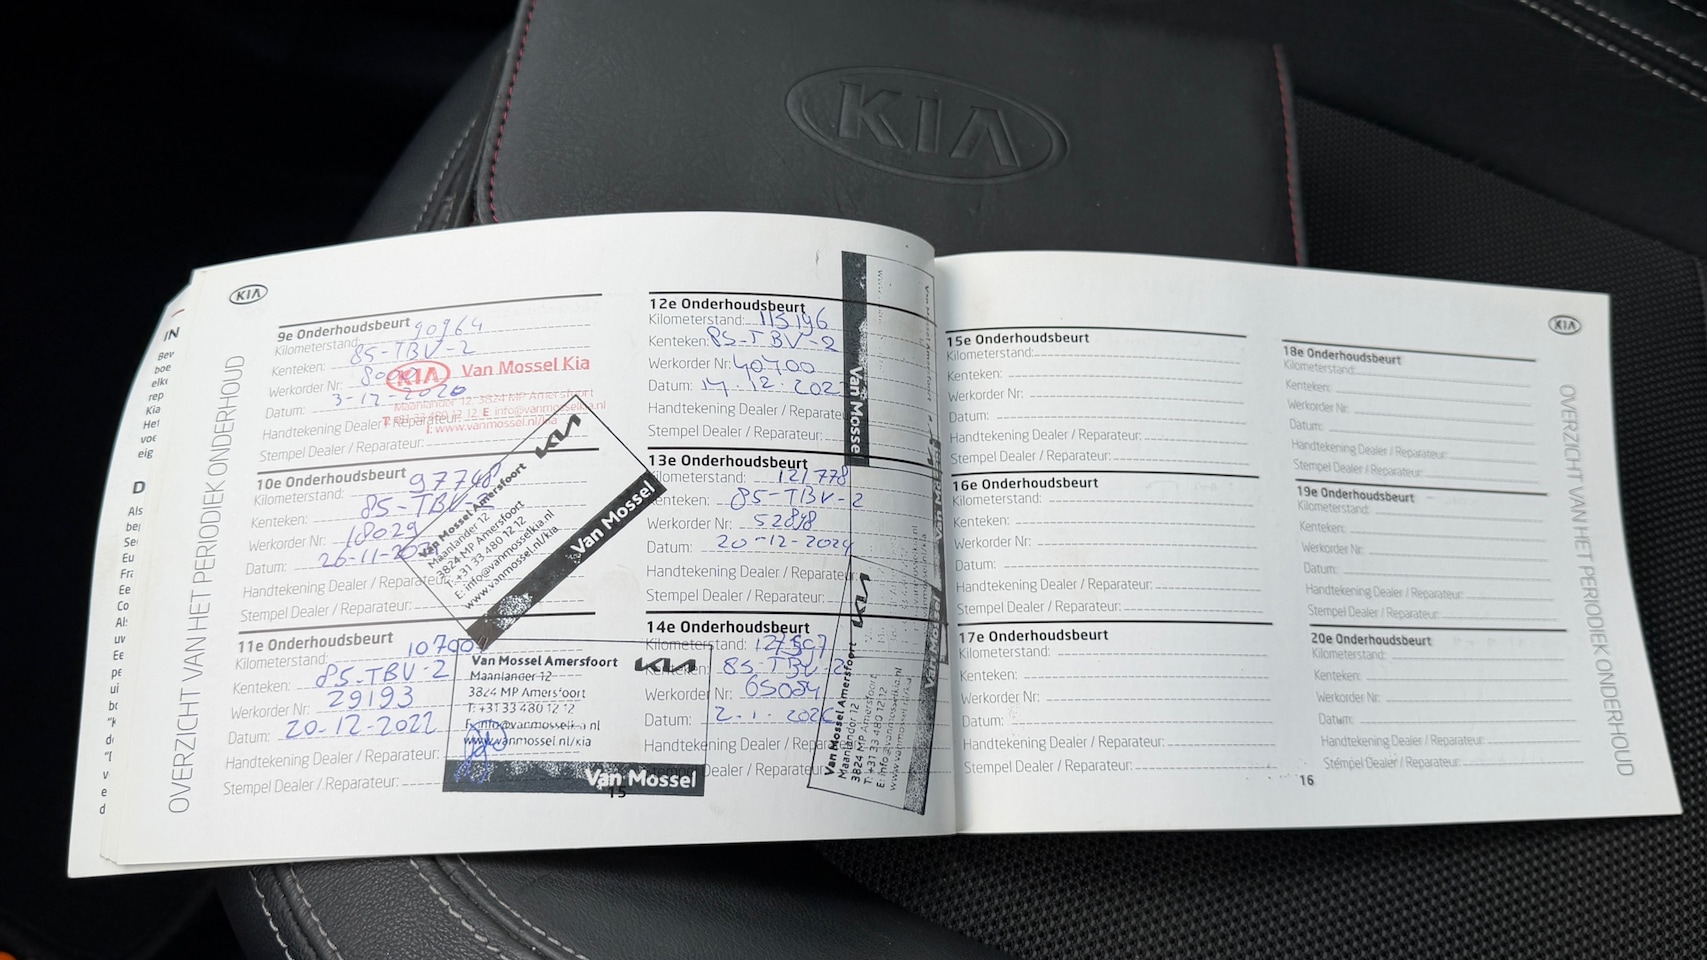 KIA
KIA
OVERZICHT VAN HET PERIODIEK ONDERHOUD
9e Onderhoudsbeurt
Kilometerstand: 90964
Kenteken: 85-TBV-2
Werkorder Nr:
Datum: 3-12-2020
Handtekening Dealer / Reparateur:
Stempel Dealer / Reparateur:
KIA Van Mossel Kia
Maanlander 12, 3824 MP Amersfoort
10e Onderhoudsbeurt
Kilometerstand: 97748
Kenteken: 85-TBV-2
Werkorder Nr: 18029
Datum: 26-11-
Handtekening Dealer / Reparateur
Stempel Dealer / Reparateur:
KIA
Van Mossel Amersfoort
Maanlander 12
3824 MP Amersfoort
T: +31 33 480 12 12
E: info@vanmosselkia.nl
www.vanmossel.nl/kia
Van Mossel
11e Onderhoudsbeurt
Kilometerstand:
Kenteken: 85-TBV-2
Werkorder Nr: 29193
Datum: 20-12-2022
Handtekening Dealer / Reparateur:
Stempel Dealer / Reparateur:
Van Mossel Amersfoort KIA
Maanlander 12
3824 MP Amersfoort
T: +31 33 480 12 12
E: info@vanmosselkia.nl
www.vanmossel.nl/kia
Van Mossel
15
12e Onderhoudsbeurt
Kilometerstand: 115196
Kenteken: 85-TBV-2
Werkorder Nr: 40700
Datum: 14-12-202
Handtekening Dealer / Reparateur
Stempel Dealer / Reparateur:
Van Mossel
13e Onderhoudsbeurt
Kilometerstand: 121778
Kenteken: 85-TBV-2
Werkorder Nr: 52848
Datum: 20-12-2024
Handtekening Dealer / Reparateur
Stempel Dealer / Reparateur:
14e Onderhoudsbeurt
Kilometerstand:
Kenteken: 85-TBV-2
Werkorder Nr:
Datum: 2-1-
Handtekening Dealer / Reparateur
Stempel Dealer / Reparateur:
KIA
Van Mossel Amersfoort
Maanlander 12
3824 MP Amersfoort
T: +31 33 480 12 12
Van Mossel
15e Onderhoudsbeurt
Kilometerstand:
Kenteken:
Werkorder Nr:
Datum:
Handtekening Dealer / Reparateur:
Stempel Dealer / Reparateur:
16e Onderhoudsbeurt
Kilometerstand:
Kenteken:
Werkorder Nr:
Datum:
Handtekening Dealer / Reparateur:
Stempel Dealer / Reparateur:
17e Onderhoudsbeurt
Kilometerstand:
Kenteken:
Werkorder Nr:
Datum:
Handtekening Dealer / Reparateur:
Stempel Dealer / Reparateur:
KIA
18e Onderhoudsbeurt
Kilometerstand:
Kenteken:
Werkorder Nr:
Datum:
Handtekening Dealer / Reparateur:
Stempel Dealer / Reparateur:
19e Onderhoudsbeurt
Kilometerstand:
Kenteken:
Werkorder Nr:
Datum:
Handtekening Dealer / Reparateur:
Stempel Dealer / Reparateur:
20e Onderhoudsbeurt
Kilometerstand:
Kenteken:
Werkorder Nr:
Datum:
Handtekening Dealer / Reparateur:
Stempel Dealer / Reparateur:
16
OVERZICHT VAN HET PERIODIEK ONDERHOUD